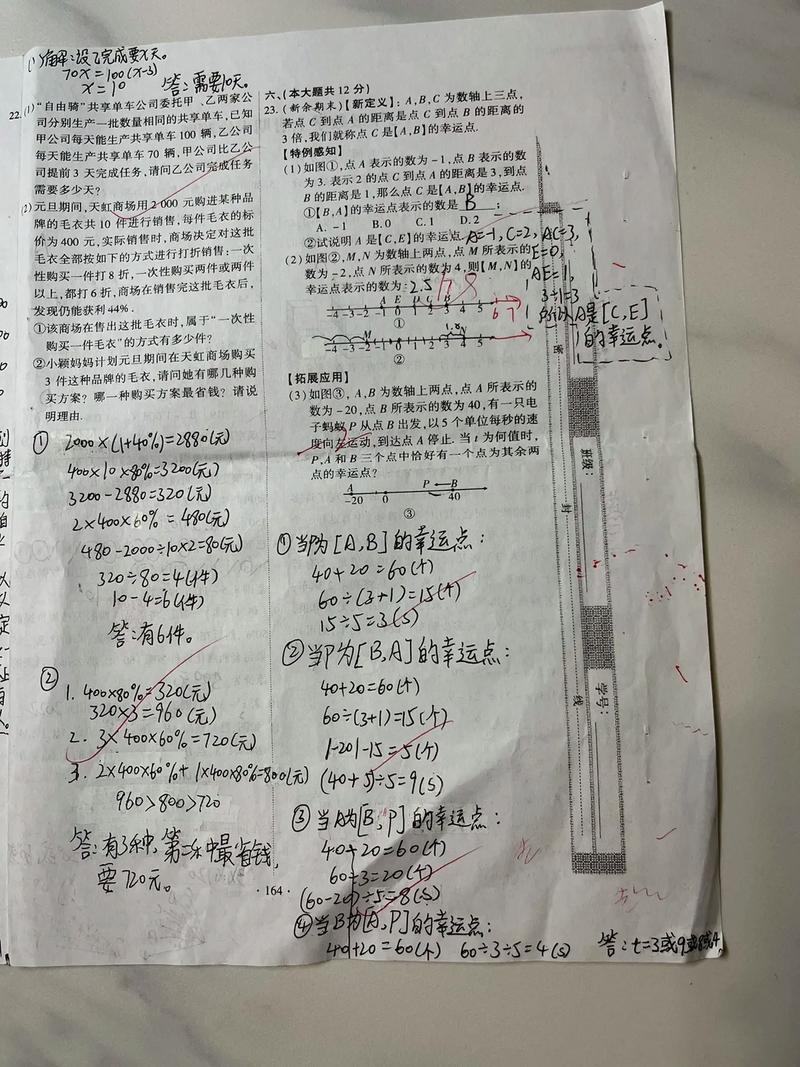 (1)解:设乙完成要x天。
70x=100(x-3)
x=10 答:需要10天。
22.(1)“自由骑”共享单车公司委托甲、乙两家公
司分别生产一批数量相同的共享单车,已知
甲公司每天能生产共享单车 100 辆,乙公司
每天能生产共享单车 70 辆,甲公司比乙公
司提前 3 天完成任务,请问乙公司完成任务
需要多少天?
(2)元旦期间,天虹商场用2 000 元购进某种品
牌的毛衣共 10 件进行销售,每件毛衣的标
价为 400 元,实际销售时,商场决定对这批
毛衣全部按如下的方式进行打折销售:一次
性购买一件打 8 折,一次性购买两件或两件
以上,都打 6 折,商场在销售完这批毛衣后,
发现仍能获利 44%.
①该商场在售出这批毛衣时,属于“一次性
购买一件毛衣”的方式有多少件?
②小颖妈妈计划元旦期间在天虹商场购买
3 件这种品牌的毛衣,请问她有哪几种购
买方案?哪一种购买方案最省钱?请说
明理由.
①
2000×(1+40%)=2880(元)
400×10×80%=3200(元)
3200-2880=320(元)
2×400×60%=480(元)
480-2000÷10×2=80(元)
320÷80=4(件)
10-4=6(件)
答:有6件。
②
1. 400×80%=320(元)
320×3=960(元)
2. 3×400×60%=720(元)
3. 2×400×60%+1×400×80%=800(元)
960>800>720
答:有3种,第二种最省钱,
要720元。
六、(本大题共 12 分)
23.(新余期末)【新定义】:A,B,C 为数轴上三点,
若点 C 到点 A 的距离是点 C 到点 B 的距离的
3 倍,我们就称点 C 是【A,B】的幸运点.
【特例感知】
(1)如图①,点 A 表示的数为 -1,点 B 表示的数
为 3. 表示 2 的点 C 到点 A 的距离是 3,到点
B 的距离是 1,那么点 C 是【A,B】的幸运点.
①【B,A】的幸运点表示的数是 B ;
A. -1 B. 0 C. 1 D. 2
②试说明 A 是【C,E】的幸运点. A=-1,C=2,AC=3,
E=0,
AE=1,
3÷1=3
所以A是[C,E]
的幸运点。
(2)如图②,M,N 为数轴上两点,点 M 所表示的
数为 -2,点 N 所表示的数为 4,则【M,N】的
幸运点表示的数为: 2.5
A E D C B
-4 -3 -2 -1 0 1 2 3 4 5 6 7
①
M N
-4 -3 -2 -1 0 1 2 3 4 5
②
【拓展应用】
(3)如图③,A,B 为数轴上两点,点 A 所表示的
数为 -20,点 B 所表示的数为 40,有一只电
子蚂蚁 P 从点 B 出发,以 5 个单位每秒的速
度向左运动,到达点 A 停止. 当 t 为何值时,
P,A 和 B 三个点中恰好有一个点为其余两
点的幸运点?
A P B
-20 0 40
③
①当P为[A,B]的幸运点:
40+20=60(个)
60÷(3+1)=15(个)
15÷5=3(s)
②当P为[B,A]的幸运点:
40+20=60(个)
60÷(3+1)=15(个)
|-20|-15=5(个)
(40+5)÷5=9(s)
③当A为[B,P]的幸运点:
40+20=60(个)
60÷3=20(个)
(60-20)÷5=8(s)
④当B为[A,P]的幸运点:
40+20=60(个) 60÷3÷5=4(s)
答:t=3或9或8或4。
· 164 ·
密
封
线
班级:
学号: